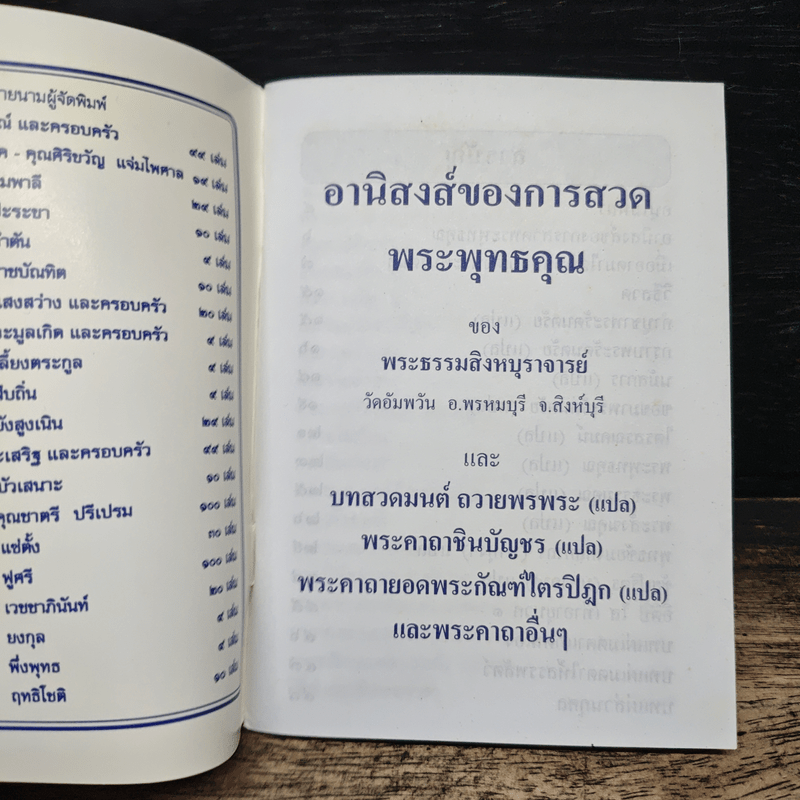 ายนามผู้จัดพิมพ์
ณ์ และครอบครัว ๙๙ เล่ม
ค - คุณศิริขวัญ แจ่มไพศาล ๑๙ เล่ม
มพาลี ๒๙ เล่ม
ประระขา ๑๐ เล่ม
ำตัน ๙ เล่ม
าชบัณฑิต ๑๐ เล่ม
แสงสว่าง และครอบครัว ๒๐ เล่ม
ะมูลเกิด และครอบครัว ๙ เล่ม
ลี้ยงตระกูล ๙ เล่ม
สืบถิ่น ๙ เล่ม
บังสูงเนิน ๒๙ เล่ม
ะเสริฐ และครอบครัว ๙๙ เล่ม
บัวเสนาะ ๑๐ เล่ม
คุณชาตรี ปรีเปรม ๑๐๐ เล่ม
แซ่ตั้ง ๓๐ เล่ม
ฟูศรี ๑๐๐ เล่ม
เวชชาภินันท์ ๒๐ เล่ม
ยงกุล ๙ เล่ม
พึ่งพุทธ ๙ เล่ม
ฤทธิโชติ ๑๐ เล่ม
อานิสงส์ของการสวด
พระพุทธคุณ
ของ
พระธรรมสิงหบุราจารย์
วัดอัมพวัน อ.พรหมบุรี จ.สิงห์บุรี
และ
บทสวดมนต์ ถวายพรพระ (แปล)
พระคาถาชินบัญชร (แปล)
พระคาถายอดพระกัณฑ์ไตรปิฎก (แปล)
และพระคาถาอื่นๆ